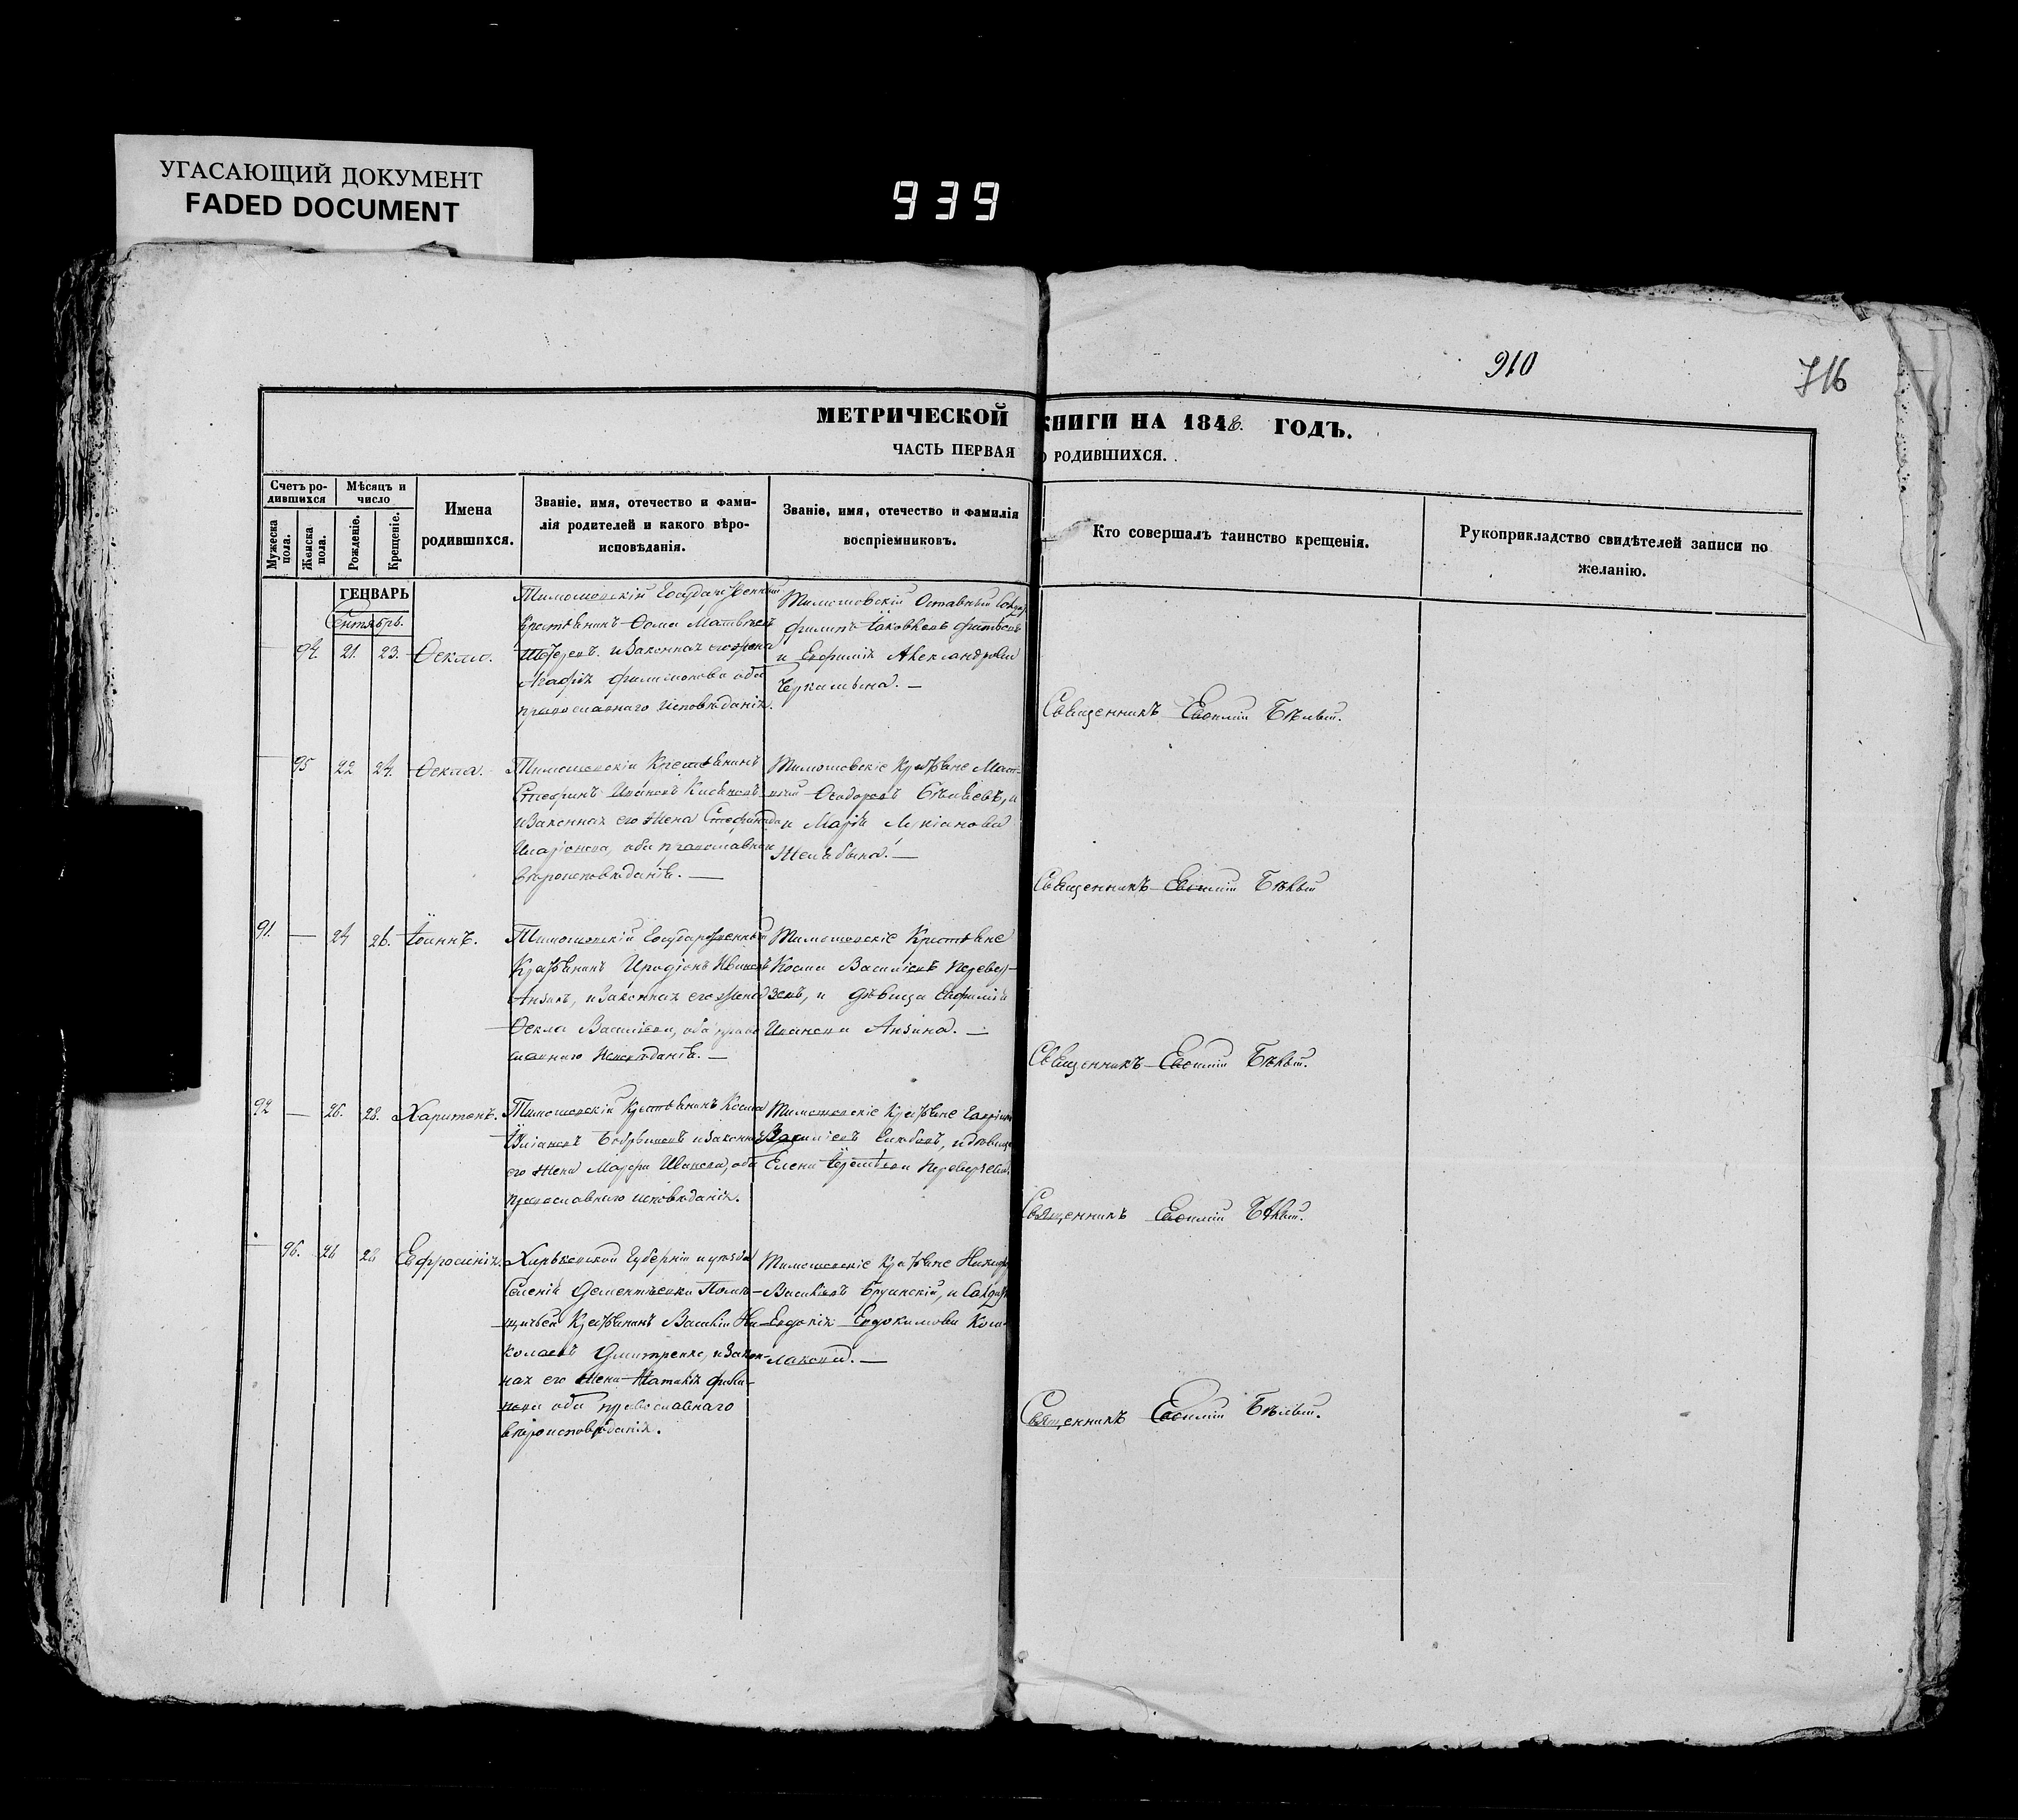 УГАСАЮЩИЙ ДОКУМЕНТ
FADED DOCUMENT
939
910
716
МЕТРИЧЕСКОЙ КНИГИ НА 1848. ГОДЪ.
ЧАСТЬ ПЕРВАЯ О РОДИВШИХСЯ.
Счетъ ро-
дившихся
Мужеска
пола.
Женска
пола.
Мѣсяцъ и
число
Рожденіе.
Крещеніе.
Имена
родившихся.
Званіе, имя, отечество и фами-
лія родителей и какого вѣро-
исповѣданія.
Званіе, имя, отечество и фамилія
воспріемниковъ.
Кто совершалъ таинство крещенія.
Рукоприкладство свидѣтелей записи по
желанію.
ГЕНВАРЬ
Сентябрь.
94. 21. 23. Ѳекла.
Тимошовскій Государственный
Крестьянинъ Ѳома Матвѣевъ
и законная его жена
Агафія Филимонова оба
православнаго исповѣданія.
Тимошовскій Отставный Солдатъ
Филипъ Іаковлевъ
и Евфимія Александрова
Священникъ Бѣлый.
95 22 24. Ѳекла.
Тимошевскій Крестьянинъ
Стефанъ Ивановъ
и законная его жена Стефанида
Иларіонова, оба православнаго
вѣроисповѣданія. —
Тимошовскіе Крестьяне
Ѳеодоровъ Бѣляевъ, и
Марія Лукіанова
Священникъ Бѣлый
91. — 24 26. Іоаннъ.
Тимошевскій Государственный
Крестьянинъ Иродіонъ Ивановъ
Анзинъ, и законная его жена
Ѳекла Васильева, оба право
славнаго исповѣданія. —
Тимошевскіе Крестьяне
Косма Васильевъ Перевер-
зевъ, и дѣвица Евфимія
Иванова Анзина. —
Священникъ Бѣлый.
92 — 26. 28. Харитонъ.
Тимошевскій Крестьянинъ Косма
и законная
его жена Марфа Иванова, оба
православнаго исповѣданія.
Тимошевскіе Крестьяне Гавріилъ
Васильевъ и дѣвица
Елена Переверзева.
Священникъ Бѣлый.
96. 26 28 Евфросинія.
Харьковской Губерніи и уѣзда
Селенія Дементѣевки Помѣ-
щичьей Крестьянинъ Василій Ни
колаевъ Дмитренко, и закон-
ная его жена Наталія Фили-
пова оба православнаго
вѣроисповѣданія.
Тимошевскіе Крестьяне Никифоръ
Васильевъ и Солдат
Евдокія Евдокимова
Священникъ Бѣлый.